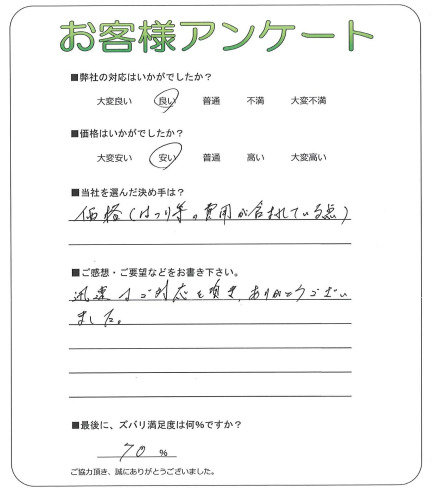 お客様アンケート
■弊社の対応はいかがでしたか？
大変良い 良い 普通 不満 大変不満
■価格はいかがでしたか？
大変安い 安い 普通 高い 大変高い
■当社を選んだ決め手は？
価格（はつり等の費用が含まれている点）
■ご感想・ご要望などをお書き下さい。
迅速なご対応を頂き、ありがとうござい
ました。
■最後に、ズバリ満足度は何％ですか？
70 ％
ご協力頂き、誠にありがとうございました。